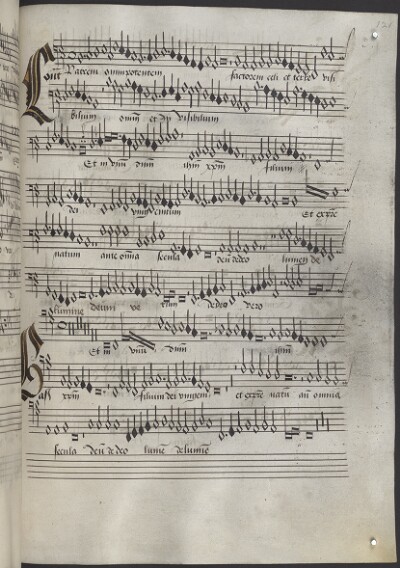 Cont Patrem omnipotentem factorem celi et terre visi
bilium omniū et visibilium
Et in unū dūm ihm xpm filium
dei unigenitum Et ex pře
natum ante omīa secula deū de deo lumen de
lumine deum ve rum de deo vero
Et in unū dūm ihm
Bass xpm filium dei unigeni et ex pře natū añ omnia
secula deū de deo lumē de lumē